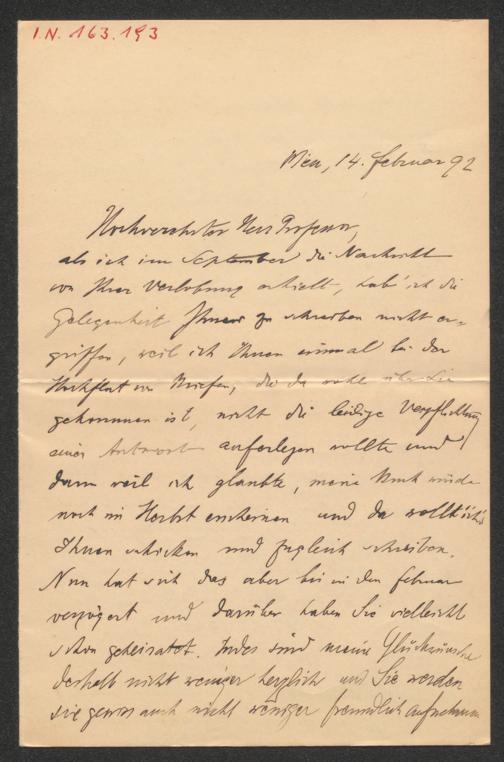 I.N. 163.193
Wien, 14. Februar 92
Hochverehrter Herr Professor,
als ich im September die Nachricht
von Ihrer Verlobung erhielt, hab' ich die
Gelegenheit Ihnen zu schreiben nicht er-
griffen, weil ich Ihnen einmal bei der
Hochflut von Briefen, die da wohl über Sie
gekommen ist, nicht die leidige Verpflichtung
einer Antwort auferlegen wollte und
dann weil ich glaubte, mein Buch würde
noch im Herbst erscheinen und da wollt' ich's
Ihnen schicken und zugleich schreiben.
Nun hat sich das aber bis in den Februar
verzögert und darüber haben Sie vielleicht
schon geheiratet. Indes sind meine Glückwünsche
deshalb nicht weniger herzlich und Sie werden
sie gewiss auch nicht weniger freundlich aufnehmen